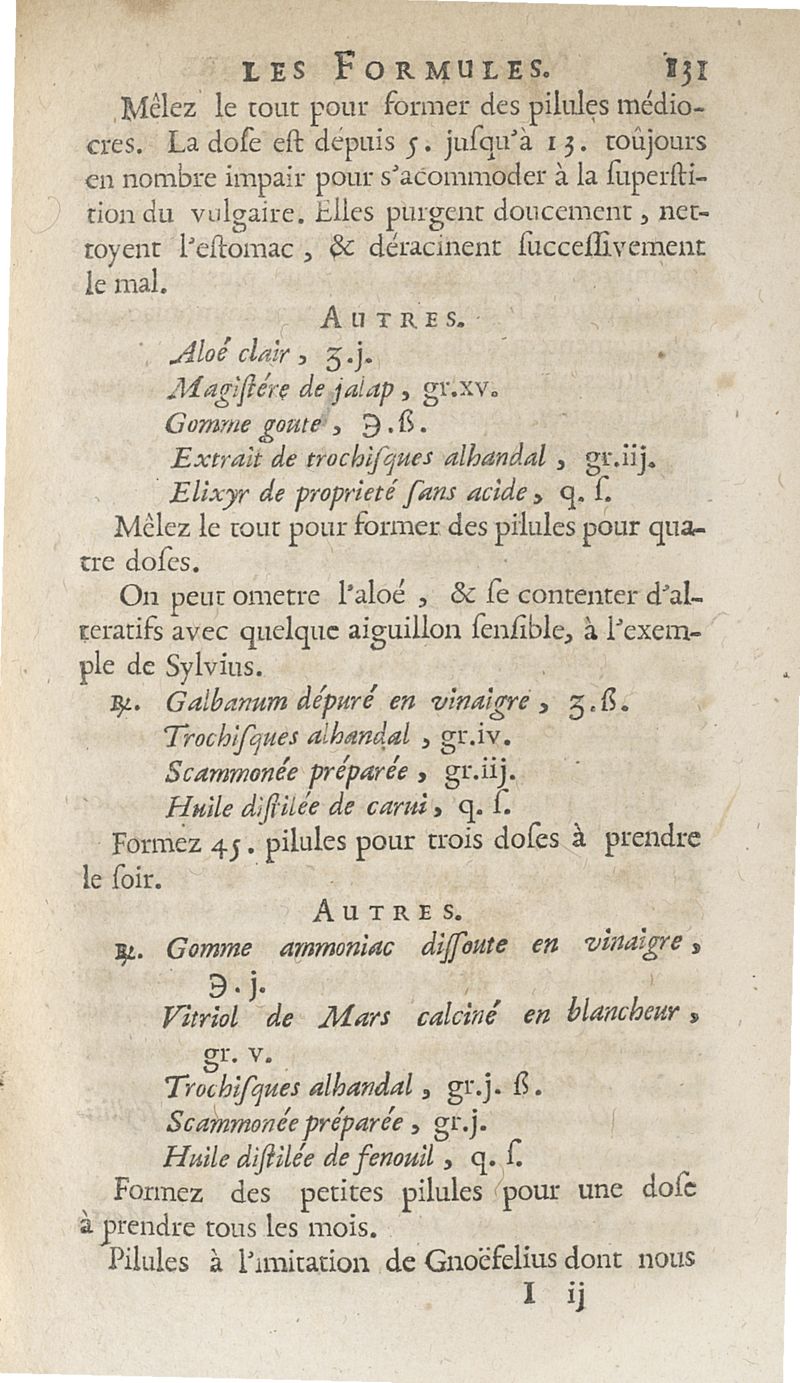 LES FORMULES. 131
Mêlez le tout pour former des pilules médio-
cres. La dose est dépuis 5. jusqu'à 13. toûjours
en nombre impair pour s'acommoder à la supersti-
tion du vulgaire. Elles purgent doucement, net-
toyent l'estomac, & déracinent successivement
le mal.
AUTRES.
Aloé clair, ʒ.j.
Magistére de jalap, gr.xv.
Gomme goute, ℈.ß.
Extrait de trochisques alhandal, gr.iij.
Elixyr de proprieté sans acide, q. s.
Mêlez le tout pour former des pilules pour qua-
tre doses.
On peut ometre l'aloé, & se contenter d'al-
teratifs avec quelque aiguillon sensible, à l'exem-
ple de Sylvius.
℞. Galbanum dépuré en vinaigre, ʒ.ß.
Trochisques alhandal, gr.iv.
Scammonée préparée, gr.iij.
Huile distilée de carui, q. s.
Formez 45. pilules pour trois doses à prendre
le soir.
AUTRES.
℞. Gomme ammoniac dissoute en vinaigre,
℈.j.
Vitriol de Mars calciné en blancheur,
gr. v.
Trochisques alhandal, gr.j. ß.
Scammonée préparée, gr.j.
Huile distilée de fenouil, q. s.
Formez des petites pilules pour une dose
à prendre tous les mois.
Pilules à l'imitation de Gnoëfelius dont nous
I ij